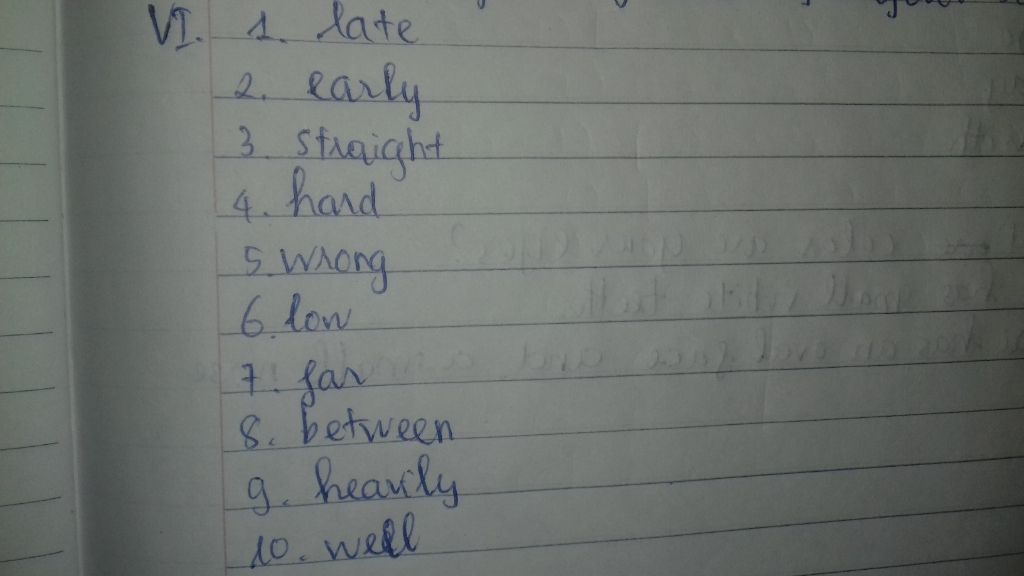 VI. 1. late
2. early
3. straight
4. hard
5. wrong
6. low
7. far
8. between
9. heavily
10. well